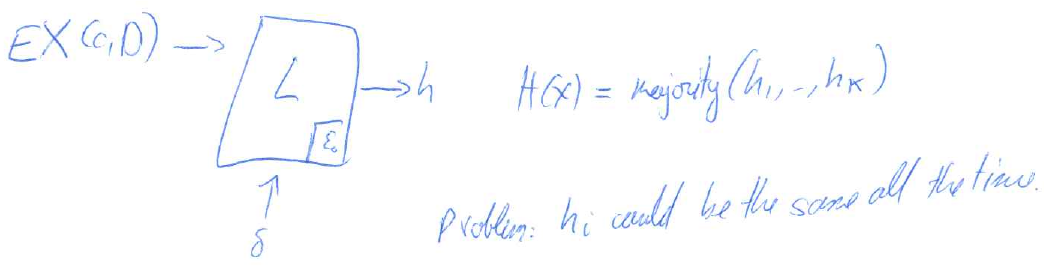 EX(c,D) →
L
→ h
ε₀
δ
H(x) = majority(h₁,..,hₖ)
Problem: hᵢ could be the same all the time.